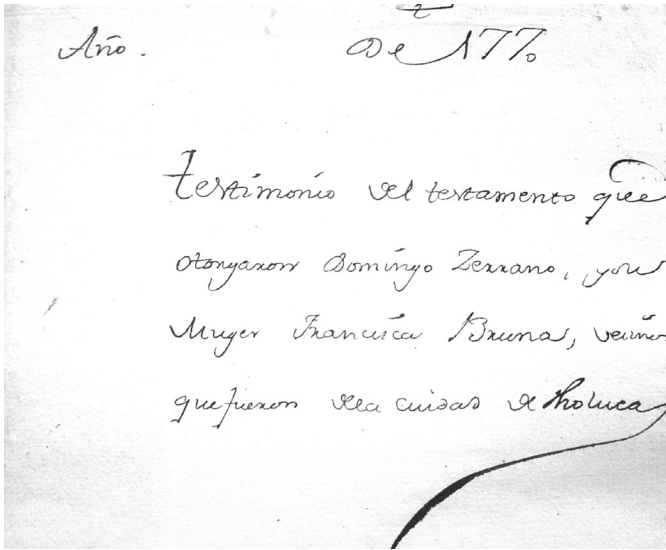 Año. De 1770
testimonio del testamento que
otorgaron Domingo Zerrano, ysu
Muger Francisca Bruna, vecinos
quefueron dela ciudad de Tholuca